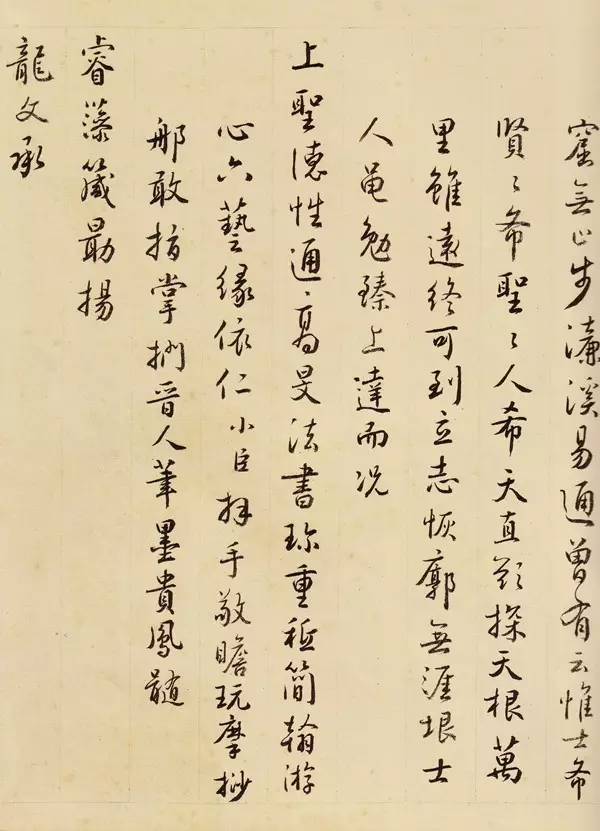 窟無止步濂溪易通曾有云惟士希
賢〻希聖〻人希天直欲探天根萬
里雖遠終可到立志恢廓無涯垠士
人黽勉臻上達而况
上聖德性通高旻法書珍重秪簡翰游
心六藝緣依仁小臣拜手敬瞻玩摩挱
那敢指掌捫晉人筆墨貴鳳髓
睿藻箴勗揚
龍文承